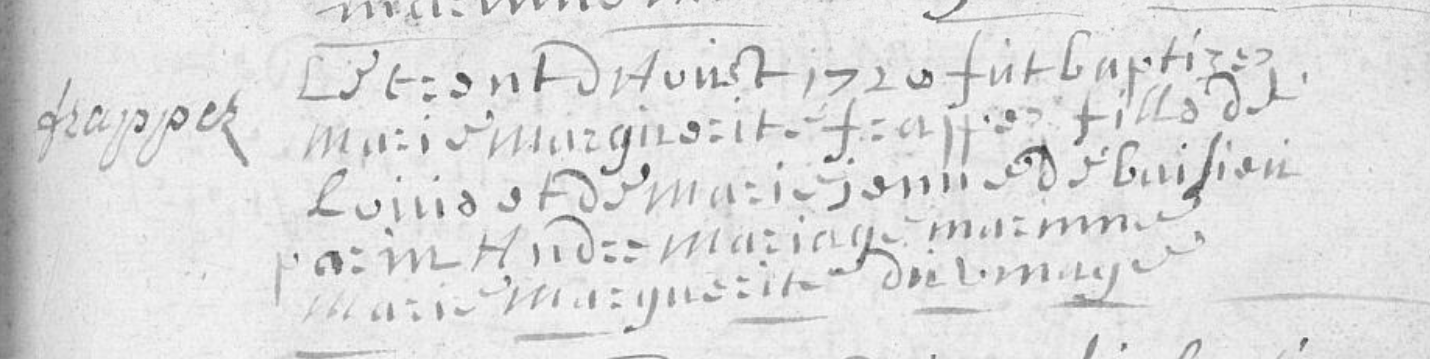 frapper
Le trent d Aoust 1720 fut baptizez
marie marguerite frappez fille de
Louis et de marie jenne de buisieu
parin Andre mariage marinne
marie marguerite du